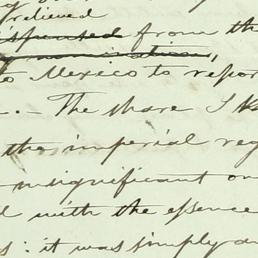 relieved
from the
to Mexico to repor
. - The share I
the imperial reg
insignificant on
with the essence
s: it was simply an